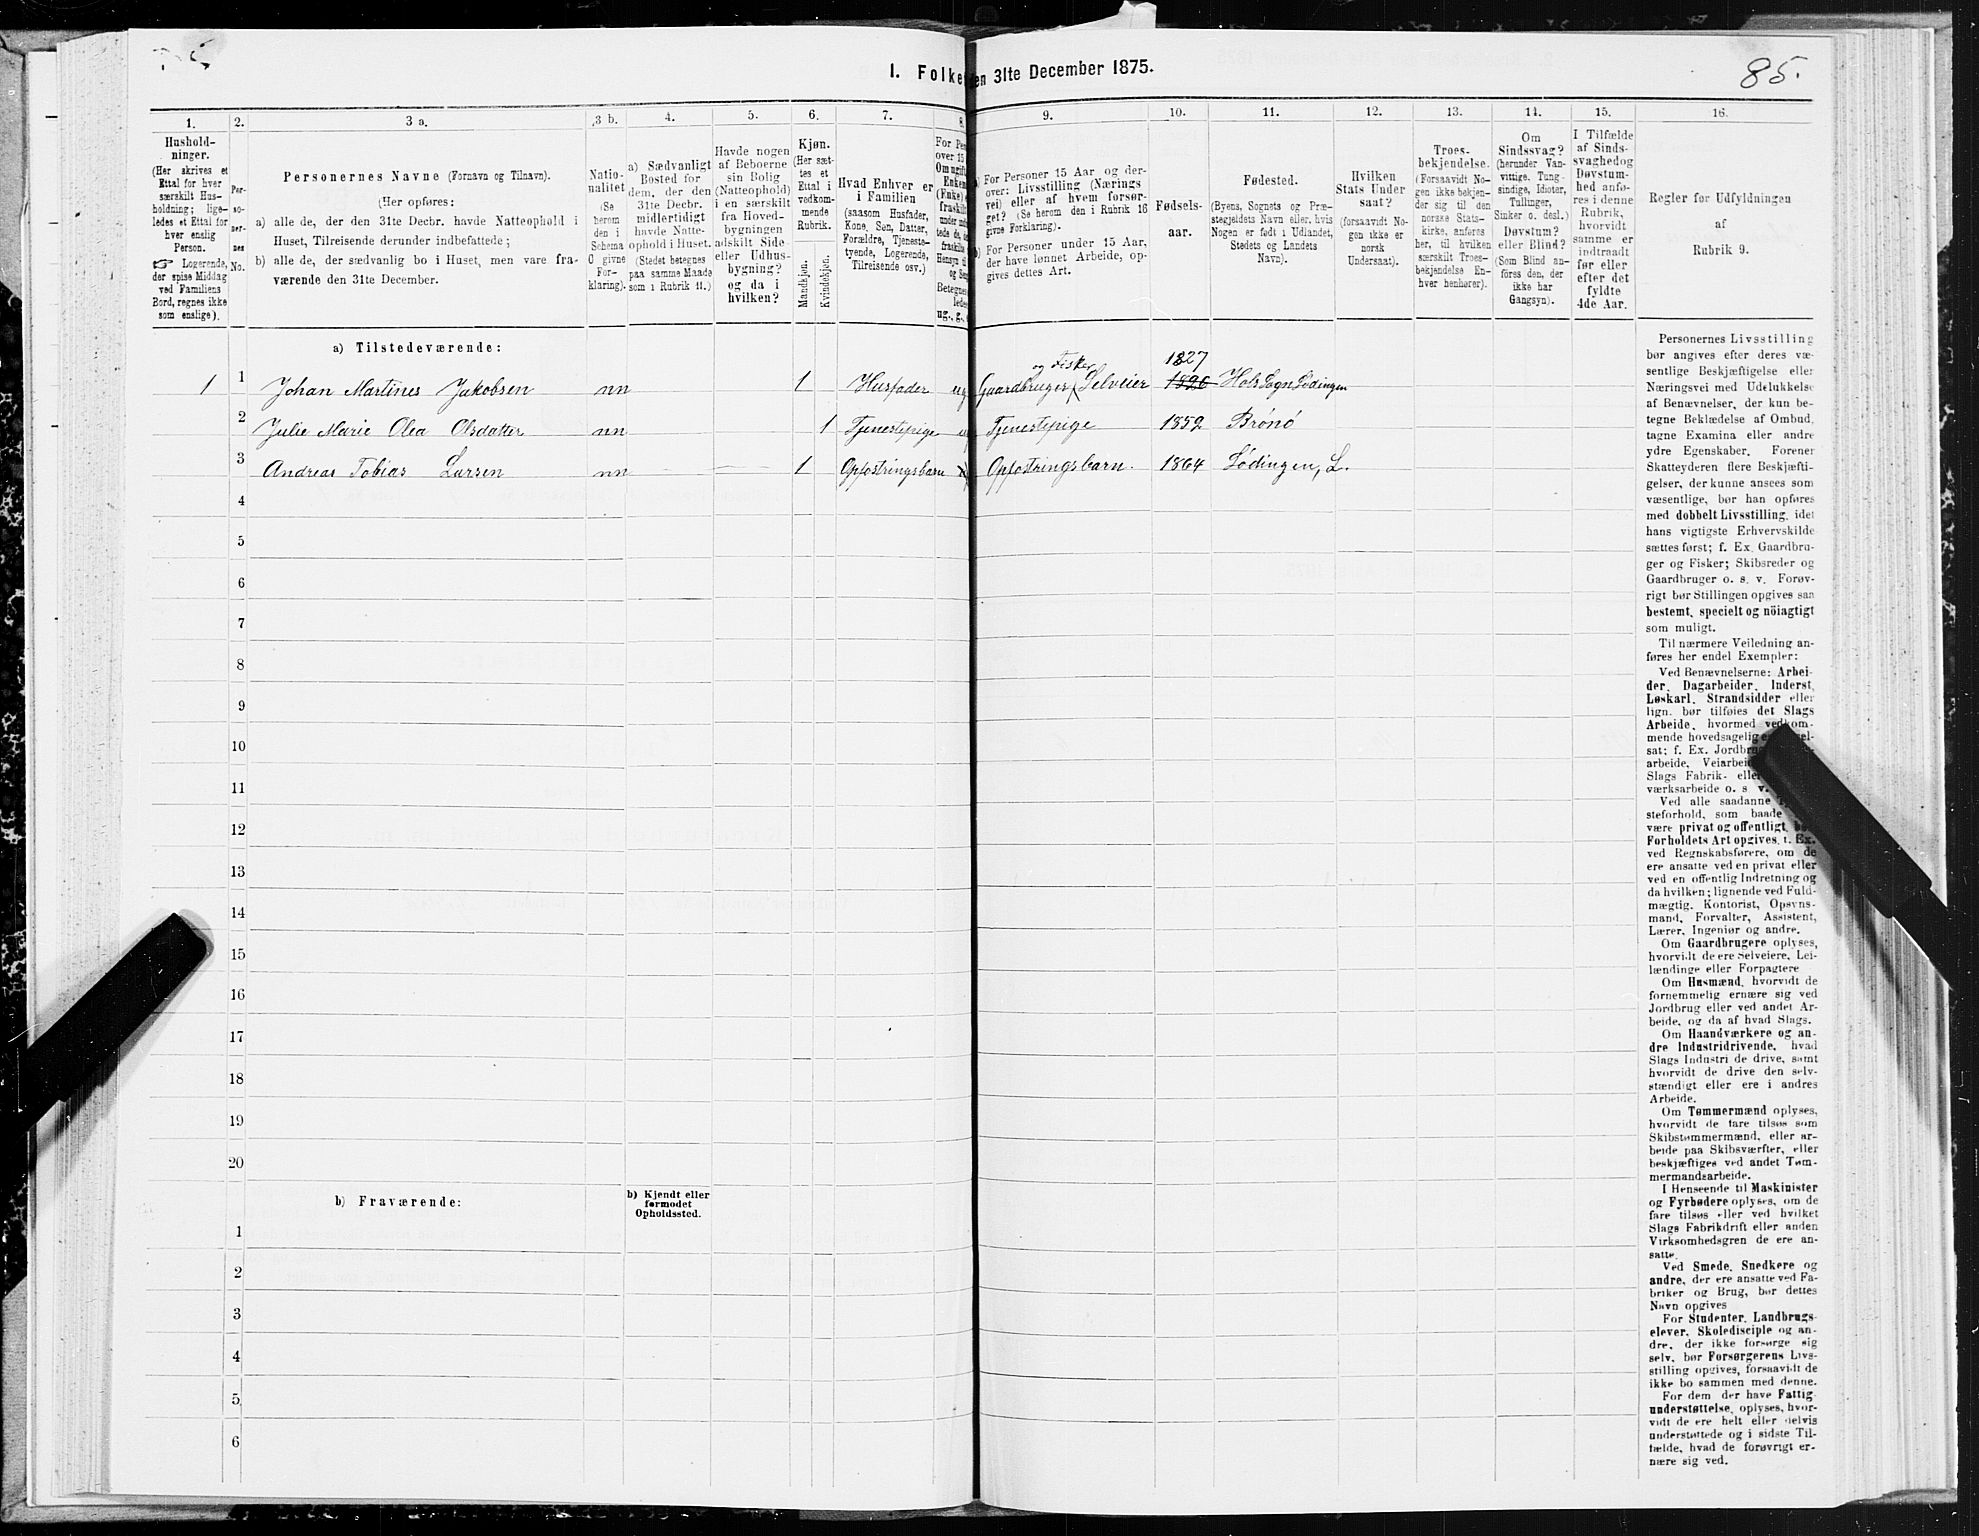 85.
I. Folke
en 31te December 1875.
1.
2.
3 a.
3 b.
4.
5.
6.
7.
8.
9.
10.
11.
12.
13.
14.
15.
16.
Hushold-
ninger.
(Her skrives et
Ettal for hver
særskilt Hus-
holdning; lige-
ledes et Ettal for
hver enslig
Person.
☞ Logerende,
der spise Middag
ved Familiens
Bord, regnes ikke
som enslige).
Per-
so-
ner-
nes
No.
Personernes Navne (Fornavn og Tilnavn).
(Her opføres:
a) alle de, der den 31te Decbr. havde Natteophold i
Huset, Tilreisende derunder indbefattede;
b) alle de, der sædvanlig bo i Huset, men vare fra-
værende den 31te December.
Natio-
nalitet
(Se
herom
den i
Schema
O givne
For-
klaring).
a) Sædvanligt
Bosted for
dem, der den
31te Decbr.
midlertidigt
havde Natte-
ophold i Huset.
(Stedet betegnes
paa samme Maade
som i Rubrik 11.)
Havde nogen
af Beboerne
sin Bolig
(Natteophold)
i en særskilt
fra Hoved-
bygningen
adskilt Side-
eller Udhus-
bygning?
og da i
hvilken?
Kjøn.
(Her sæt-
tes et
Ettal i
vedkom-
mende
Rubrik.
Mandkjøn.
Kvindekjøn.
Hvad Enhver er
i Familien
(saasom Husfader,
Kone, Søn, Datter,
Forældre, Tjeneste-
tyende, Logerende,
Tilreisende osv.)
For Pe
over 15
Om ugift
Enkem
(Enke) e
fraskilt
ug., g.,
a) For Personer 15 Aar og der-
over: Livsstilling (Nærings
vei) eller af hvem forsør-
get? (Se herom den i Rubrik 16
givne Forklaring).
b) For Personer under 15 Aar,
der have lønnet Arbeide, op-
gives dettes Art.
Fødsels-
aar.
Fødested.
(Byens, Sognets og Præ-
stegjeldets Navn eller, hvis
Nogen er født i Udlandet,
Stedets og Landets
Navn).
Hvilken
Stats Under
saat?
(forsaavidt No-
gen ikke er
norsk
Undersaat).
Troes-
bekjendelse.
(Forsaavidt No-
gen ikke bekjen-
der sig til den
norske Stats-
kirke, anføres
her, til hvilken
særskilt Troes-
bekjendelse En-
hver henhører).
Om
Sindssvag?
(herunder Van-
vittige, Tung-
sindige, Idioter,
Tullinger,
Sinker o. desl.)
Døvstum?
eller Blind?
(Som Blind an-
føres den, der
ikke har
Gangsyn).
I Tilfælde
af Sinds-
svaghed og
Døvstum-
hed anfø-
res i denne
Rubrik,
hvorvidt
samme er
indtraadt
før eller
efter det
fyldte
4de Aar.
Regler for Udfyldningen
af
Rubrik 9.
a) Tilstedeværende:
og Fisker 1827
1 1 Johan Martines Jakobsen nn 1 Husfader ug Gaardbruger, Selveier 1826 Hols Sogn Lødingen
2 Julie Marie Olea Olsdatter nn 1 Tjenestepige Tjenestepige 1852 Brønø
3 Andreas Tobias Larsen nn 1 Opfostringsbarn Opfostringsbarn. 1864 Lødingen, L.
4
5
6
7
8
9
10
11
12
13
14
15
16
17
18
19
20
b) Fraværende:
b) Kjendt eller
formodet
Opholdssted.
1
2
3
4
5
6
Personernes Livsstilling
bør angives efter deres væ-
sentlige Beskjæftigelse eller
Næringsvei med Udelukkelse
af Benævnelser, der kun be-
tegne Beklædelse af Ombud,
tagne Examina eller andre
ydre Egenskaber. Forener
Skatteyderen flere Beskjæfti-
gelser, der kunne ansees som
væsentlige, bør han opføres
med dobbelt Livsstilling, idet
hans vigtigste Erhvervskilde
sættes først; f. Ex. Gaardbru-
ger og Fisker; Skibsreder og
Gaardbruger o. s. v. Forøv-
rigt bør Stillingen opgives saa
bestemt, specielt og nöiagtigt
som muligt.
Til nærmere Veiledning an-
føres her endel Exempler:
Ved Benævnelserne: Arbei-
der, Dagarbeider, Inderst,
Løskarl, Strandsidder eller
lign. bør tilføies det Slags
Arbeide, hvormed vedkom-
mende hovedsagelig
sat; f. Ex. Jordbru
arbeide, Veiarbei
Slags Fabrik- elle
værksarbeide o. s. v.
Ved alle saadanne
steforhold, som baade
være privat og offentligt,
Forholdets Art opgives, t. Ex.
ved Regnskabsførere, om de
ere ansatte ved en privat eller
ved en offentlig Indretning og
da hvilken; lignende ved Fuld-
mægtig, Kontorist, Opsyns-
mand, Forvalter, Assistent,
Lærer, Ingeniør og andre.
Om Gaardbrugere oplyses,
hvorvidt de ere Selveiere, Lei-
lændinge eller Forpagtere
Om Husmænd, hvorvidt de
fornemmelig ernære sig ved
Jordbrug eller ved andet Ar-
beide, og da af hvad Slags.
Om Haandværkere og an-
dre Industridrivende, hvad
Slags Industri de drive, samt
hvorvidt de drive den selv-
stændigt eller ere i andres
Arbeide.
Om Tømmermænd oplyses,
hvorvidt de fare tilsøs som
Skibstømmermænd, eller ar-
beide paa Skibsværfter, eller
beskjæftiges ved andet Tøm-
mermandsarbeide.
I Henseende til Maskinister
og Fyrbødere oplyses, om de
fare tilsøs eller ved hvilket
Slags Fabrikdrift eller anden
Virksomhedsgren de ere an-
satte.
Ved Smede, Snedkere og
andre, der ere ansatte ved Fa-
briker og Brug, bør dettes
Navn opgives
For Studenter, Landbrugs-
elever, Skoledisciple og an-
dre, der ikke forsørge sig
selv, bør Forsørgerens Livs-
stilling opgives, forsaavidt de
ikke bo sammen med denne.
For dem der have Fattig-
understøttelse, oplyses, hvor-
vidt de ere helt eller delvis
understøttede og i sidste Til-
fælde, hvad de forøvrigt er-
nære sig ved.